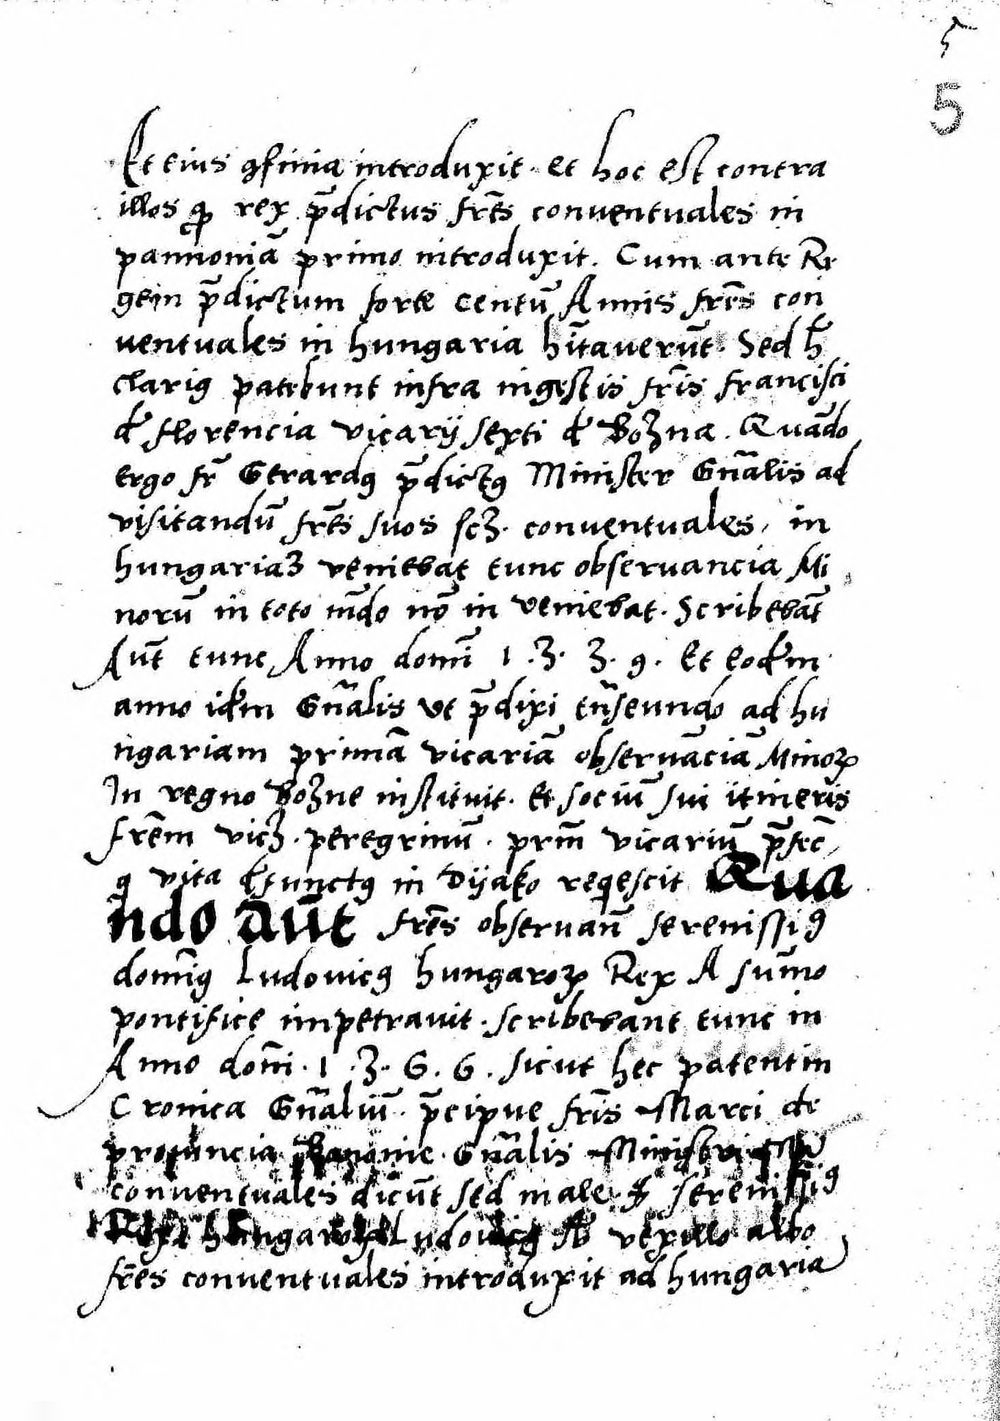 5
5
Et eius ꝯfinia introduxit. et hoc est contra
illos ꝙ rex p̄dictus fr̄es conventuales in
pannoniā primo introduxit. Cum ante Re
gem p̄dictum forte centū Annis fr̄es con
uentuales in hungaria hītaverūt. Sed h̄
clariꝰ patebunt infra in gestis fr̄is francisci
d̄ florencia vicarij sexti d̄ boʒna. Quādo
ergo fr̄ Gerardꝰ p̄dictꝰ Minister Gn̄alis ad
visitandū fr̄es suos scʒ. conventuales, in
hungariaʒ veniebat tunc observancia Mi
norū in toto mūdo nō in veniebat. Scribebāt
Aūt tunc Anno domī 1.3.3.9. Et eod̄m
anno id̄m Gn̄alis vt p̄dixi trāseundo ad hu
ngariam primā vicariā observāciā Minoꝝ
In regno boʒne instituit. Et sociū sui itineris
frēm vicʒ. peregrinū. prīm vicariū p̄fec̄,
q̄ vita d̄functꝰ in Dyako req̄escit Qua
ndo aūt fr̄es observan̄ serenissiꝰ
domīꝰ Ludovicꝰ hungaroꝝ Rex A sūmo
pontifice impetravit. scribebant tunc in
Anno domī. 1.3.6.6. sicut hec patent in
Cronica Gn̄aliū. p̄cipue fr̄is Marci de
provincia Gn̄alis Ministri
conventuales dicūt sed male. ꝙ serenissiꝰ
Rex hungaroꝝ Ludovicꝰ Ab vexillo albo
fr̄es conventuales introduxit ad hungariā